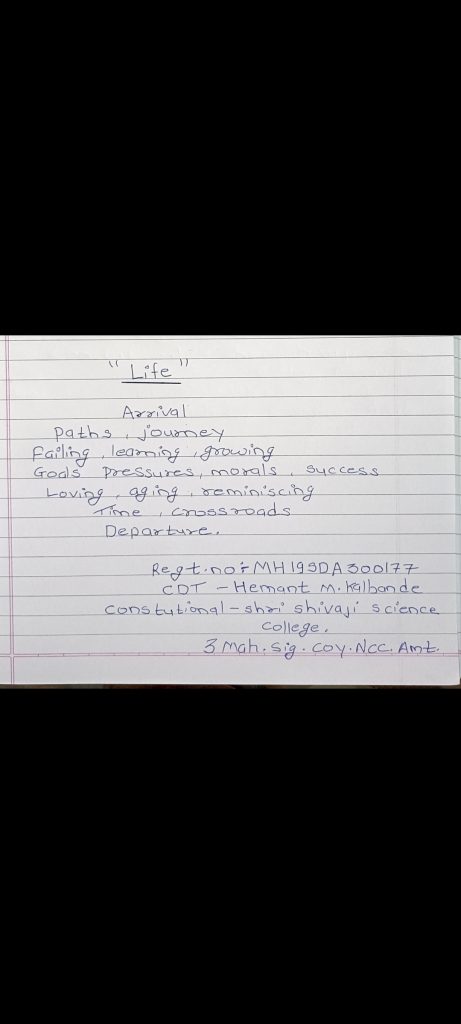 "Life"
Arrival
Paths, journey
Failing, learning, growing
Goals pressures, morals, success
Loving, aging, reminiscing
Time, crossroads
Departure.
Regt.no:- MH19SDA300177
CDT - Hemant M. Kalbande
Constutional - shri shivaji science
College.
3 Mah. Sig. Coy. Ncc. Amt.